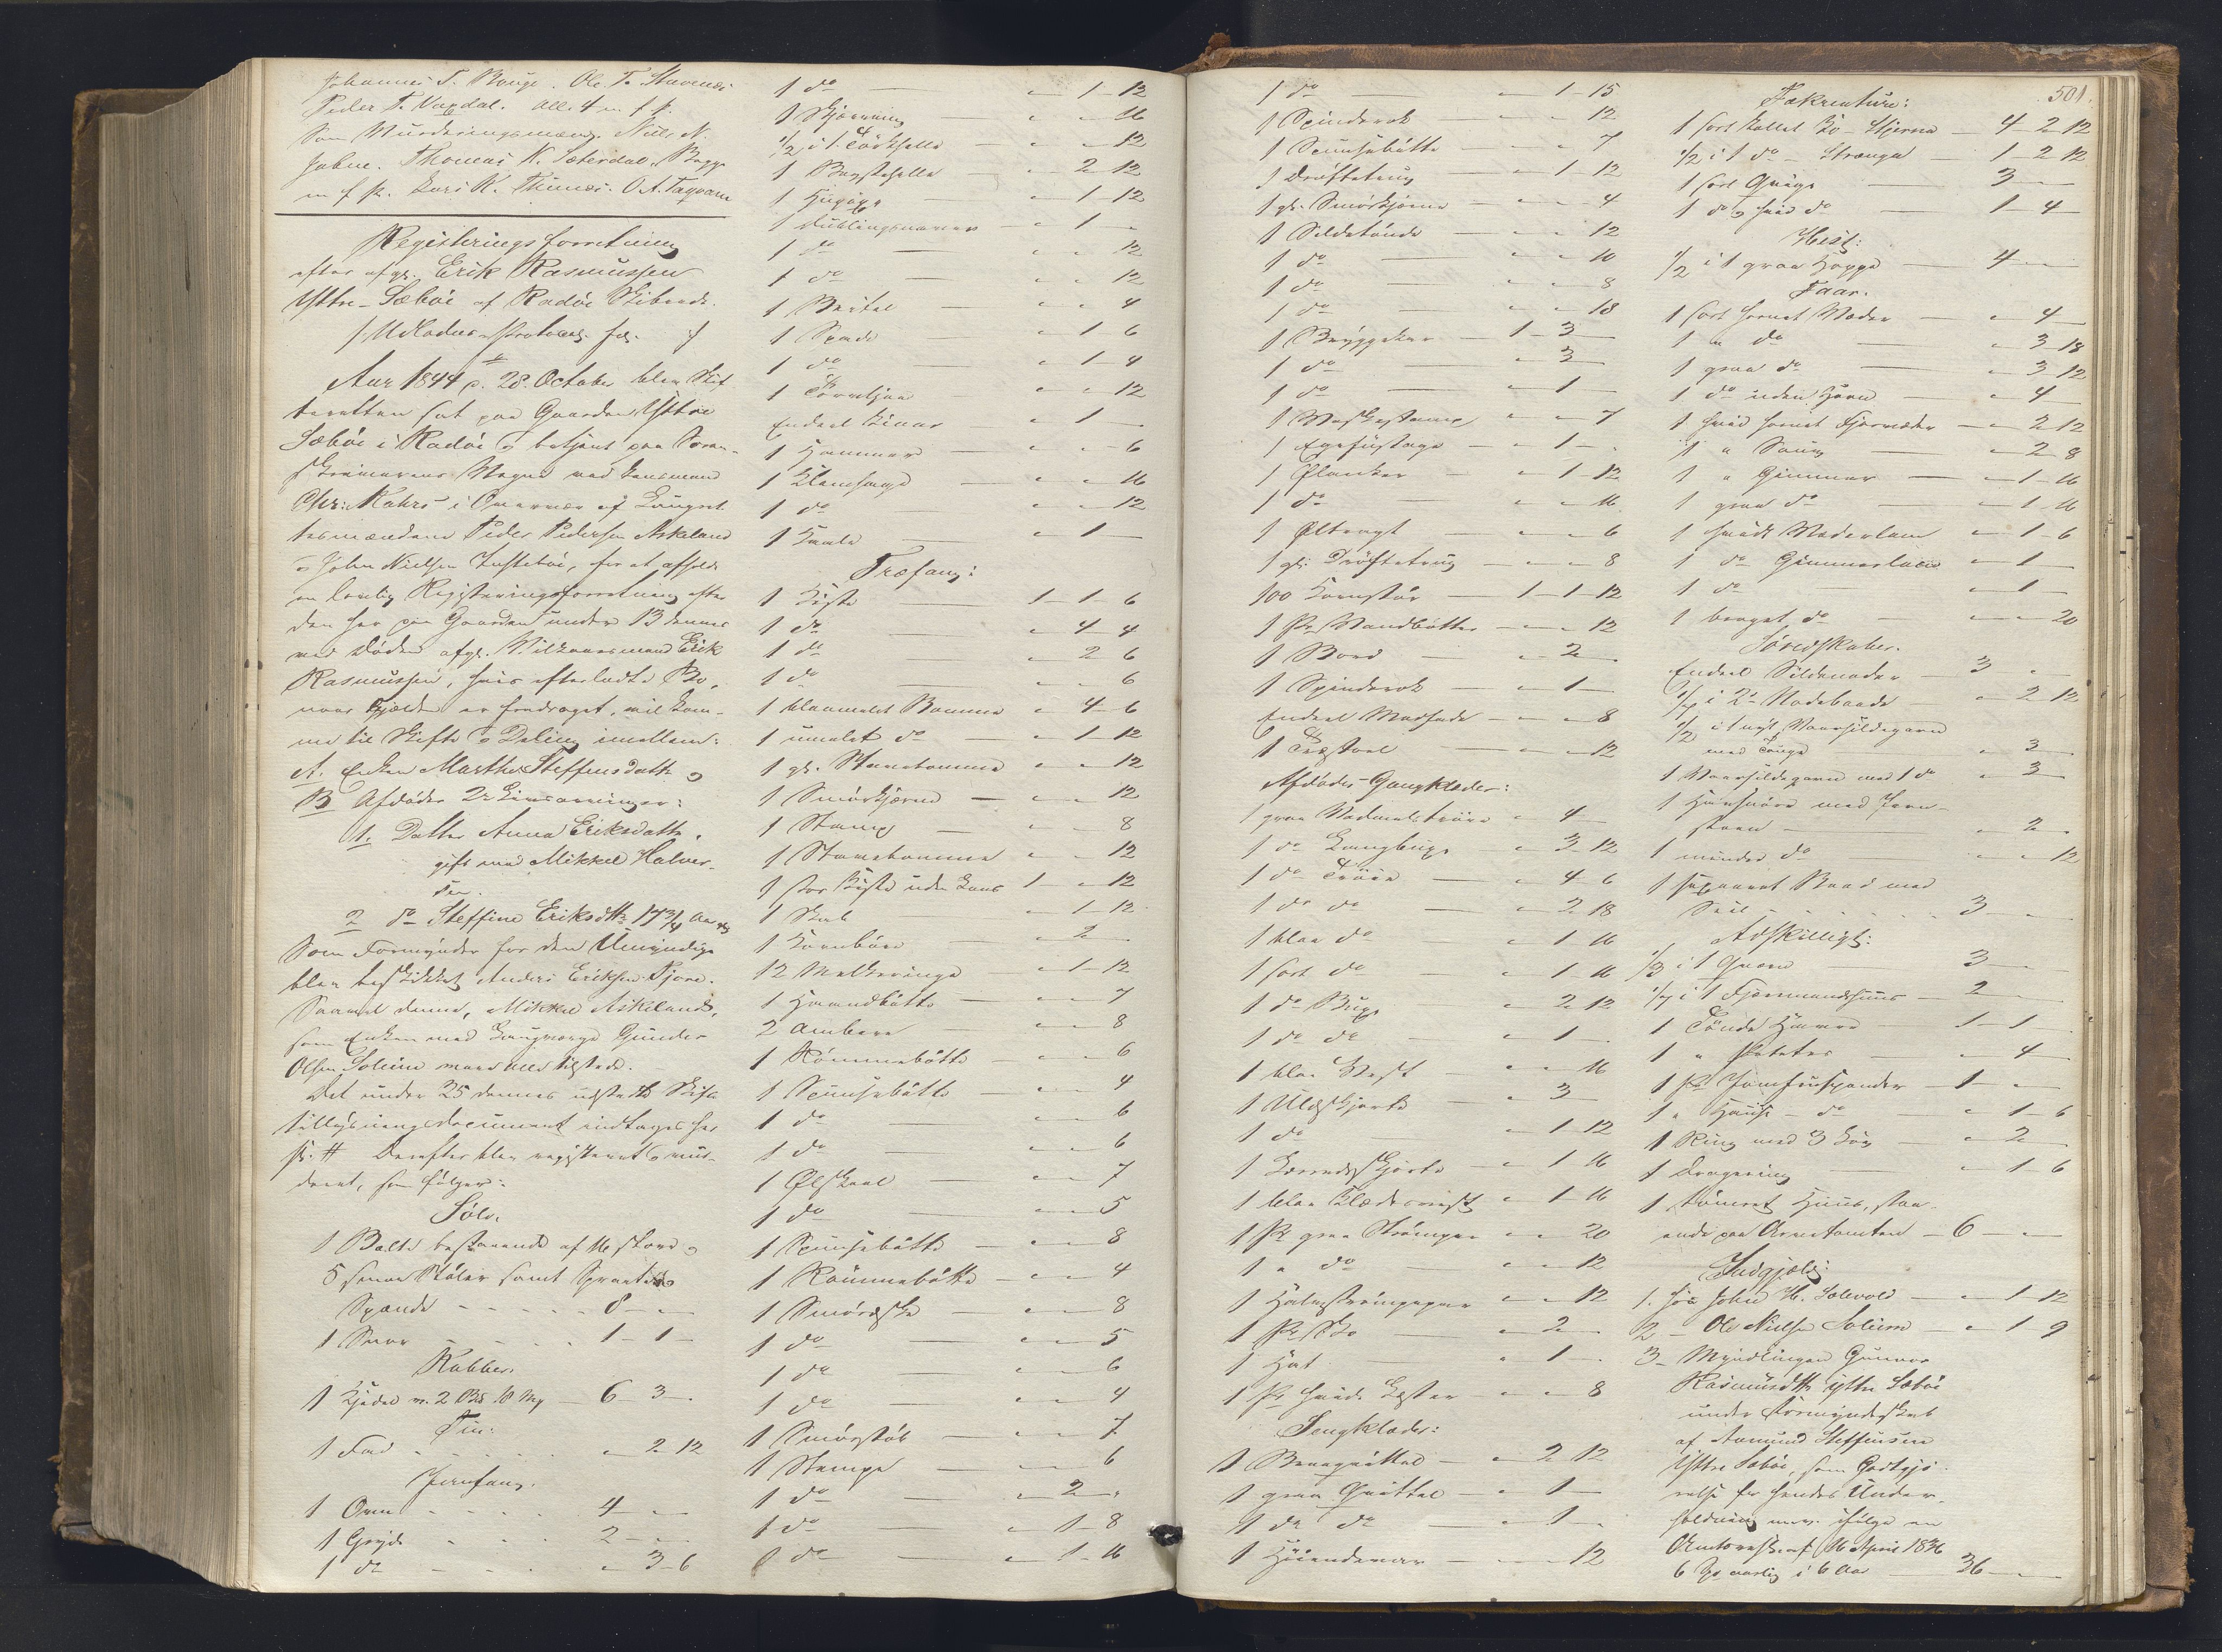 Johannes T. Bauge. Ole T. Stavenes.
Peder T. Vagdal. alle 4 m. f. p.
Som Vurderingsmænd. Niels N.
Thomas N. Sæterdal. Begge
m. f. p. Lars K. Thunes. O. A. Taqvam
Registreringsforretning
efter afgl. Erik Rasmussen
Yttre-Sæbøe af Radøe Skibrede.
Aar 1844 d. 28. October blev Skif-
teretten sat paa Gaarden Yttre
Sæbøe i Radøe og betjent paa Soren-
skriverens Vegne ved Lensmand
Chr: Mohrs i Overvær af Laugret-
tesmændene Peder Pedersen Askeland
og John Nielsen Tustebøe, for at afholde
en lovlig Registreringsforretning efter
den her paa Gaarden under 13 dennes
ved Døden afgl. Vilkaarsmand Erik
Rasmussen, hvis efterladte Bo,
naar Gjælden er fradraget, vil kom-
me til Skifte og Deling imellem:
A. Enken Marthe Steffensdatter og
B Afdødes 2de Livsarvinger:
1. Datter Anna Eriksdatter.
gift med Mikkel Halvor-
sen.
2 do Steffine Eriksdtr 17 3/4 Aar
Som Formynder for den Umyndige
blev beskikket Anders Eriksen Fjore.
Saavel denne, Mikkel Askeland,
som Enken med Laugværge Gunder
Olsen Soleim vare ved tilstede.
Det under 25 dennes udstedte Skifte
tillysningsdocument indtages her
sk. # Derefter blev registreret og vur-
deret, som følger:
Sølv.
1 Belte bestaaende af 16 store og
5 smaa Støler samt
Spænde - - - - - 8 - „ -
1 - - - - 1 - 1 -
Kobber.
1 Kjedel v. 2 Bd 18 Mrk — 6 - 3 -
Tin:
1 Fad - - - - - „ - 2 - 12
Jernfang.
1 Ovn - - - - - 4 - „
1 Gryde - - - - 2 -
1 do - - - - „ - 3 - 6
1 do — „ - 1 - 12
1 Skjærding — „ - „ - 16
1/2 i 1 — „ - „ - 12
1 — „ - 2 - 12
1 Hugøxe — „ - 1 - 12
1 Dublingsnaver — „ - 1 -
1 do — „ - „ - 12
1 do — „ - „ - 12
1 — „ - „ - 4
1 Spade — „ - 1 - 6
1 do — „ - 1 - 4
1 — „ - „ - 12
Endeel — „ - 1 -
1 Hammer — „ - „ - 6
1 Klamsaug — „ - „ - 16
1 do — „ - „ - 12
1 — „ - 1 -
Træfang:
1 Kiste — 1 - 1 - 6
1 do — „ - 4 - 4
1 do — „ - 2 - 6
1 do — „ - „ - 6
1 blaamalet Bomme „ - 4 - 6
1 umalet do — „ - 1 - 12
1 gl. Stavebomme „ - „ - 12
1 Smørkjerne — „ - „ - 12
1 Stamp — „ - „ - 8
1 Stavebomme — „ - „ - 12
1 stor Kiste uden Laas 1 - „ - 12
1 Skab — „ - 1 - 12
1 Kornbøre — „ - 2 -
12 Melkeringe — „ - 1 - 12
1 Haandbøtte — „ - „ - 7
2 Ambere — „ - „ - 8
1 Rømmebøtte — „ - „ - 6
1 Spundsebøtte — „ - „ - 4
1 do — „ - „ - 6
1 do — „ - „ - 6
1 Ølskaal — „ - „ - 7
1 do — „ - „ - 5
1 Spundsebøtte — „ - „ - 8
1 Rømmebøtte — „ - „ - 4
1 Smørøske — „ - „ - 8
1 do — „ - „ - 5
1 do — „ - „ - 6
1 do — „ - „ - 4
1 — „ - „ - 7
1 Stampe — „ - „ - 6
1 do — „ - 2 - „
1 do — „ - 1 - 8
1 do — „ - 1 - 16
1 do — „ - 1 - 15
1 Spinderok — „ - „ - 12
1 Spundsebøtte — „ - „ - 7
1 Drøftetrug — „ - 1 - 12
1 gl. Smørkjerne — „ - „ - 4
1 Sildetønde — „ - „ - 12
1 do — „ - „ - 10
1 do — „ - „ - 8
1 do — „ - „ - 18
1 Bryggekar — 1 - 3 -
1 do — „ - 3 -
1 do — „ - 1 -
1 — „ - „ - 7
1 Egefustage — „ - 1 -
1 Ølanker — „ - 1 - 12
1 do — „ - „ - 16
1 — „ - „ - 6
1 gl. Drøftetrug — „ - „ - 8
100 Kornstør — 1 - 1 - 12
1 Pr Vandbøtter — „ - „ - 12
1 Bord — „ - 2 -
1 Spinderok — „ - 1 -
Endeel Madfade — „ - „ - 8
1 — „ - „ - 12
Afdødes-Gangklæder:
1 graa Vadmelstrøie „ - 4 -
1 do Langbuxe — „ - 3 - 12
1 do Trøie — „ - 4 - 6
1 do do — „ - 2 - 18
1 blaa do — „ - 1 - 16
1 sort do — „ - 1 - 16
1 do Buxe — „ - 2 - 12
1 do do — „ - 1 -
1 blaa Vest — „ - „ - 16
1 Uldskjorte — „ - 3 -
1 do — „ - 1 - 12
1 Lærredsskjorte — „ - 1 - 16
1 blaa Klædesvest „ - 1 - 16
1 Pr graa Strømper „ - „ - 20
1 „ do — „ - „ - 12
1 — „ - „ - 12
1 Pr Sko — „ - 2 -
1 Hat — „ - 1 -
1 Pr hvide — „ - „ - 8
Sengklæder:
1 — „ - 2 - 12
1 graa Qvittel — „ - 1 -
1 do do — „ - 1 -
1 — „ - „ - 12
501.
Fækreature:
1 sort kollet Ko - Stjerna — 4 - 2 - 12
1/2 i 1 do - — 1 - 2 - 12
1 sort Qvige — 3 -
1 do og hvid do — 1 - 4 -
Hest:
1/2 i 1 graa Hoppe — 4 - „
Faar.
1 sort hornet Væder — „ - 4 -
1 „ do — „ - 3 - 18
1 graa do — „ - 3 - 12
1 do uden Horn — „ - 4 -
1 hvid hornet — „ - 2 - 12
1 „ Saug — „ - 2 - 8
1 „ Gimmer — „ - 1 - 16
1 graa do — „ - 1 - 16
1 hvidt Væderlam — „ - 1 - 6
1 do Gimmerlam — „ - 1 -
1 do — „ - 1 -
1 broget do — „ - „ - 20
Søredskaber.
Endeel Sildenøder — 3 - „
i 2de Nodebaade — „ - 2 - 12
1/2 i 1 nyt Vaarsildegarn
med — „ - 3 -
1 Vaarsildegarn med 1 do „ - 3 -
1 med Jern-
— „ - 2 -
1 mindre do — „ - „ - 12
1 sexaaret Baad med
Seil - - - - 3 -
Adskilligt:
1/3 i 1 Qværn — 3 -
1/7 i 1 — 2 -
1 Tønde Havre — 1 - 1 -
1 „ Poteter — „ - 4 -
1 — 1 - „
1 „ do — „ - 1 - 6
1 Ring med 3 — „ - 2 -
1 — „ - 1 - 6
1 tømret Huus, staa-
ende paa — 6 - „ -
Indgjæld:
1. hos John H. Solevold — „ - 1 - 12
2 - Ole Nielsen Soleim — „ - 1 - 9
3 - Myndlingen Gunnor
Rasmusdtr Yttre Sæbøe
under Formynderskab
af Aamund Steffensen
Yttre Sæbøe, som Godtgjø-
relse for hendes Under-
holdning m. v. ifølge en
16 April 1836
6 Spd. aarlig i 6 Aar — 36 - „ -